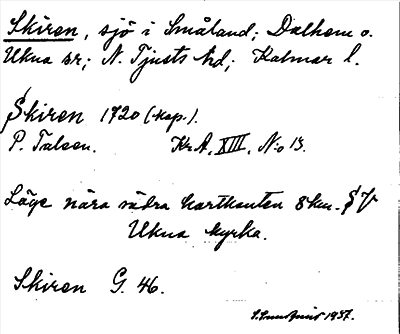 Skiren, sjö i Småland; Dalhem o.
Ukna sr; N. Tjusts hd; Kalmar l.
Skiren 1720 (kop.).
P. Talson. Kr.A. XIII, N:o 13.
Läge nära södra kartkanten 8 km. S V
Ukna kyrka.
Skiren G. 46.
1937.